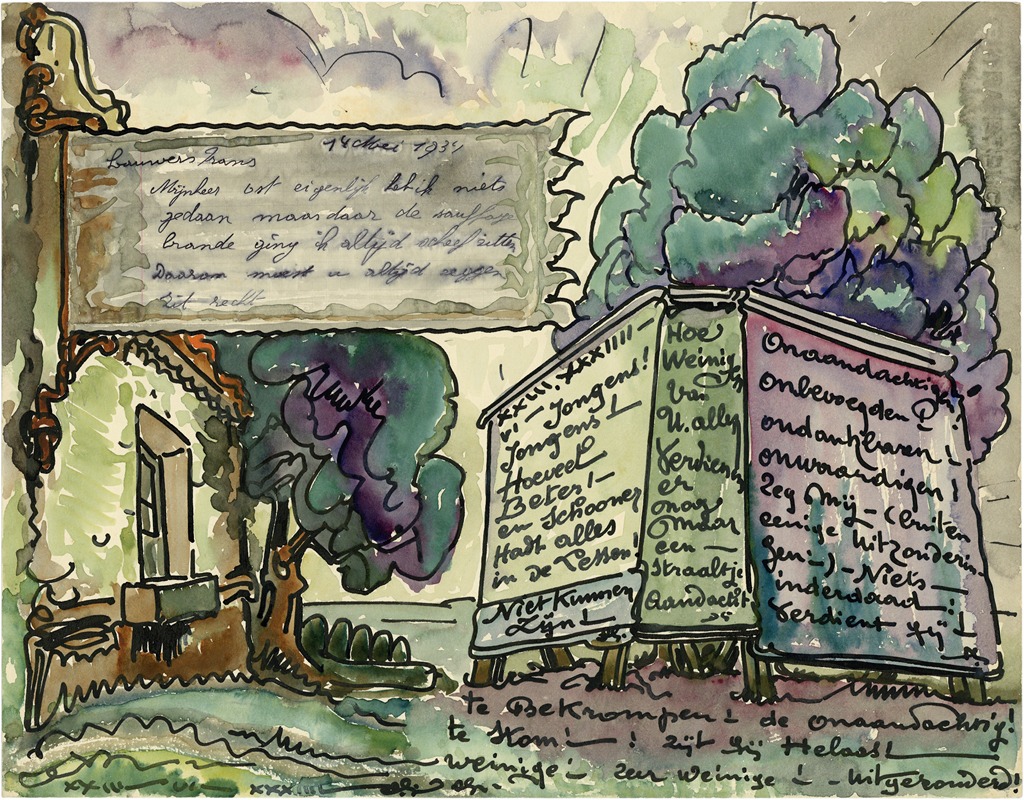 Lauwers Frans 14 Mei 1934
Mijnheer ost eigenlijk heb ik niets
gedaan maar daar de
brande ging ik altijd scheef zitten
Daarom moest u altijd zeggen
zit recht
XXIII. XXXIIII —
VI — Jongens!
Jongens!
Hoeveel
Beter! —
en Schooner
Hadt alles
in de Tessen!
Niet Kunnen
Zijn!
Hoe
Weinig
Van
U. allen
Verdienen
er
nog
maar
een —
Straaltje
Aandacht
Onaandachtigen
onbevoegden!
ondankbaren!
onwaardigen!
Zeg Mij — (buiten
eenige Uitzonderin-
gen!-) — Niets —
inderdaad!
Verdient gij!
te BeKrompen! de onaandachtig!
te Stom! — ! zijt gij Helaas!
weinige! — zeer weinige! — Uitgezonderd!
XXIII — VI — XXXIIII